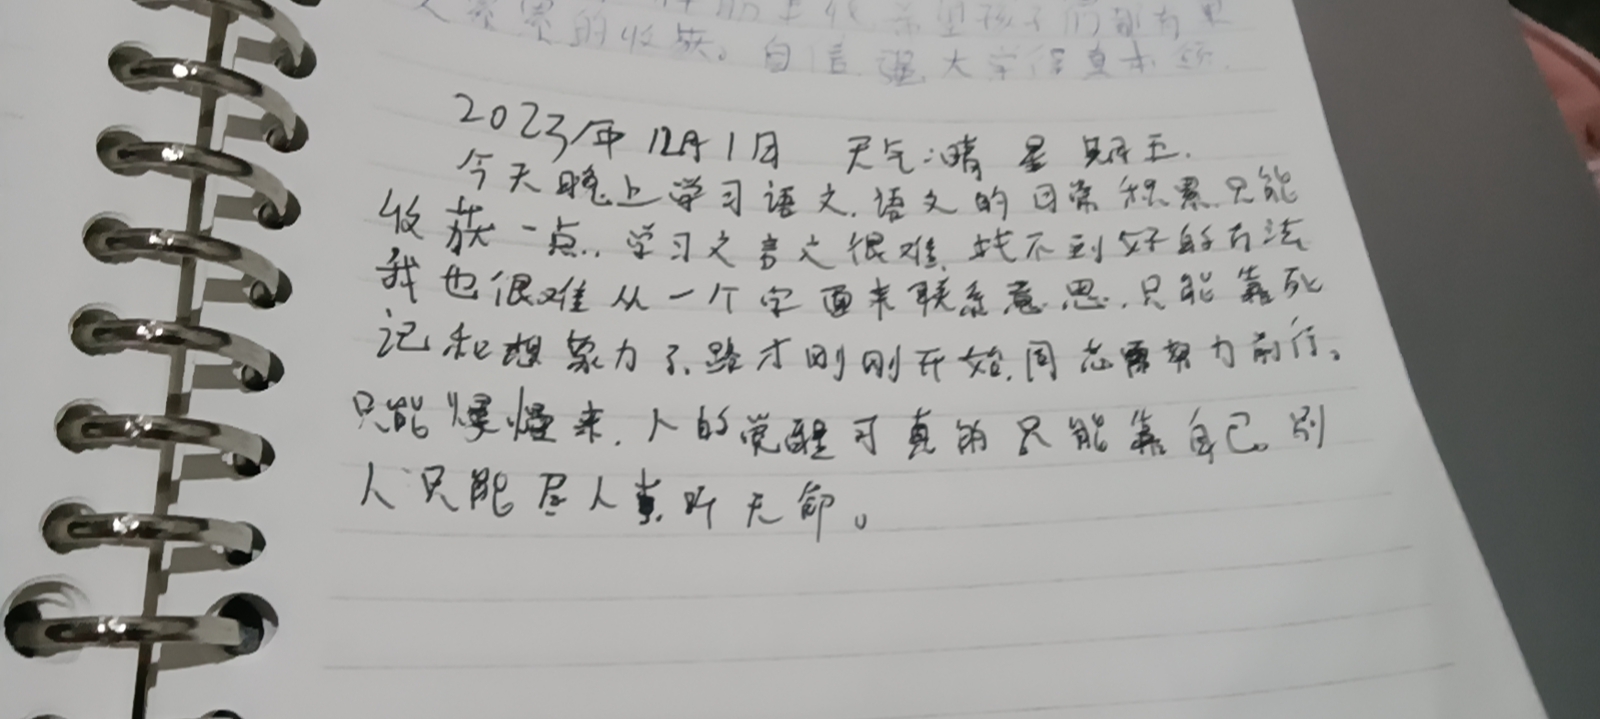 累累的收获。自信 强大
2023年12月1日 天气:晴 星期五.
今天晚上学习语文.语文的日常积累只能
收获一点.学习文言文很难,找不到好的方法
我也很难从一个字面来联系意思.只能靠死
记和想象力了.路才刚刚开始.同志需努力前行。
只能慢慢来.人的觉醒可真的只能靠自己.别
人只能尽人事听天命。